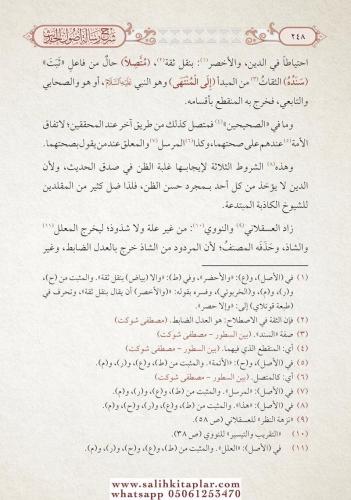 ٢٤٨
شرح رسالة أصول الحديث
احتياطاً في الدين، والأخصر(١): بنقل ثقة(٢)، (مُتَّصِلاً) حالٌ من فاعلِ «ثَبَتَ»
(سَنَدُهُ) الثقاتُ(٣) من المبدأ (إِلَى المُنْتَهَى) وهو النبي عليه السلام، أو هو والصحابي
والتابعي، فخرج به المنقطع بأقسامه.
وما في «الصحيحين»(٤) فمتصل كذلك من طريق آخر عند المحققين؛ لاتفاق
الأمة(٥) عندهم على صحتهما، وكذا(٦) المرسل(٧) والمعلق عند من يقول بصحتهما.
وهذه(٨) الشروط الثلاثة لإيجابها غلبة الظن في صدق الحديث، ولأن
الدين لا يؤخذ من كل أحد بمجرد حسن الظن، فلذا ضل كثير من المقلدين
للشيوخ الكاذبة المبتدعة.
زاد العسقلاني(٩) والنووي(١٠): من غير علة ولا شذوذ؛ ليخرج المعلل(١١)
والشاذ، وحَذَفَه المصنفُ؛ لأن المردود من الشاذ خرج بالعدل الضابط، وغير
(١) في (الأصل)، و(ع): «والأحضر»، وفي (ط): «والا (بياض) بنقل ثقة». والمثبت من (ح)،
و(ر)، و(م)، و(الخربوتي)، وفسره بقوله: «(والأخصر) أن يقال بنقل ثقة»، وتحرف في
(طبعة قوتلاي) إلى: «وإلا حصر».
(٢) فإن الثقة في الاصطلاح: هو العدل الضابط. (مصطفى شوكت)
(٣) صفة «السند». (بين السطور - مصطفى شوكت)
(٤) أي: المنقطع الذي فيهما. (بين السطور - مصطفى شوكت)
(٥) في (الأصل)، و(ح): «الأئمة». والمثبت من (ط)، و(ع)، و(ر)، و(م).
(٦) أي: كالمتصل. (بين السطور - مصطفى شوكت)
(٧) في (الأصل): «لمرسل». والمثبت من (ط)، و(ع)، و(ح)، و(ر)، و(م).
(٨) في (الأصل): «هذا». والمثبت من (ط)، و(ع)، و(ر)، و(ح)، و(م).
(٩) «نزهة النظر» للعسقلاني (ص ٥٨).
(١٠) «التقريب والتيسير» للنووي (ص ٣٨).
(١١) في (الأصل): «العلل». والمثبت من (ط)، و(ع)، و(ح)، و(ر)، و(م).
www.salihkitaplar.com
whatsapp 05061253470